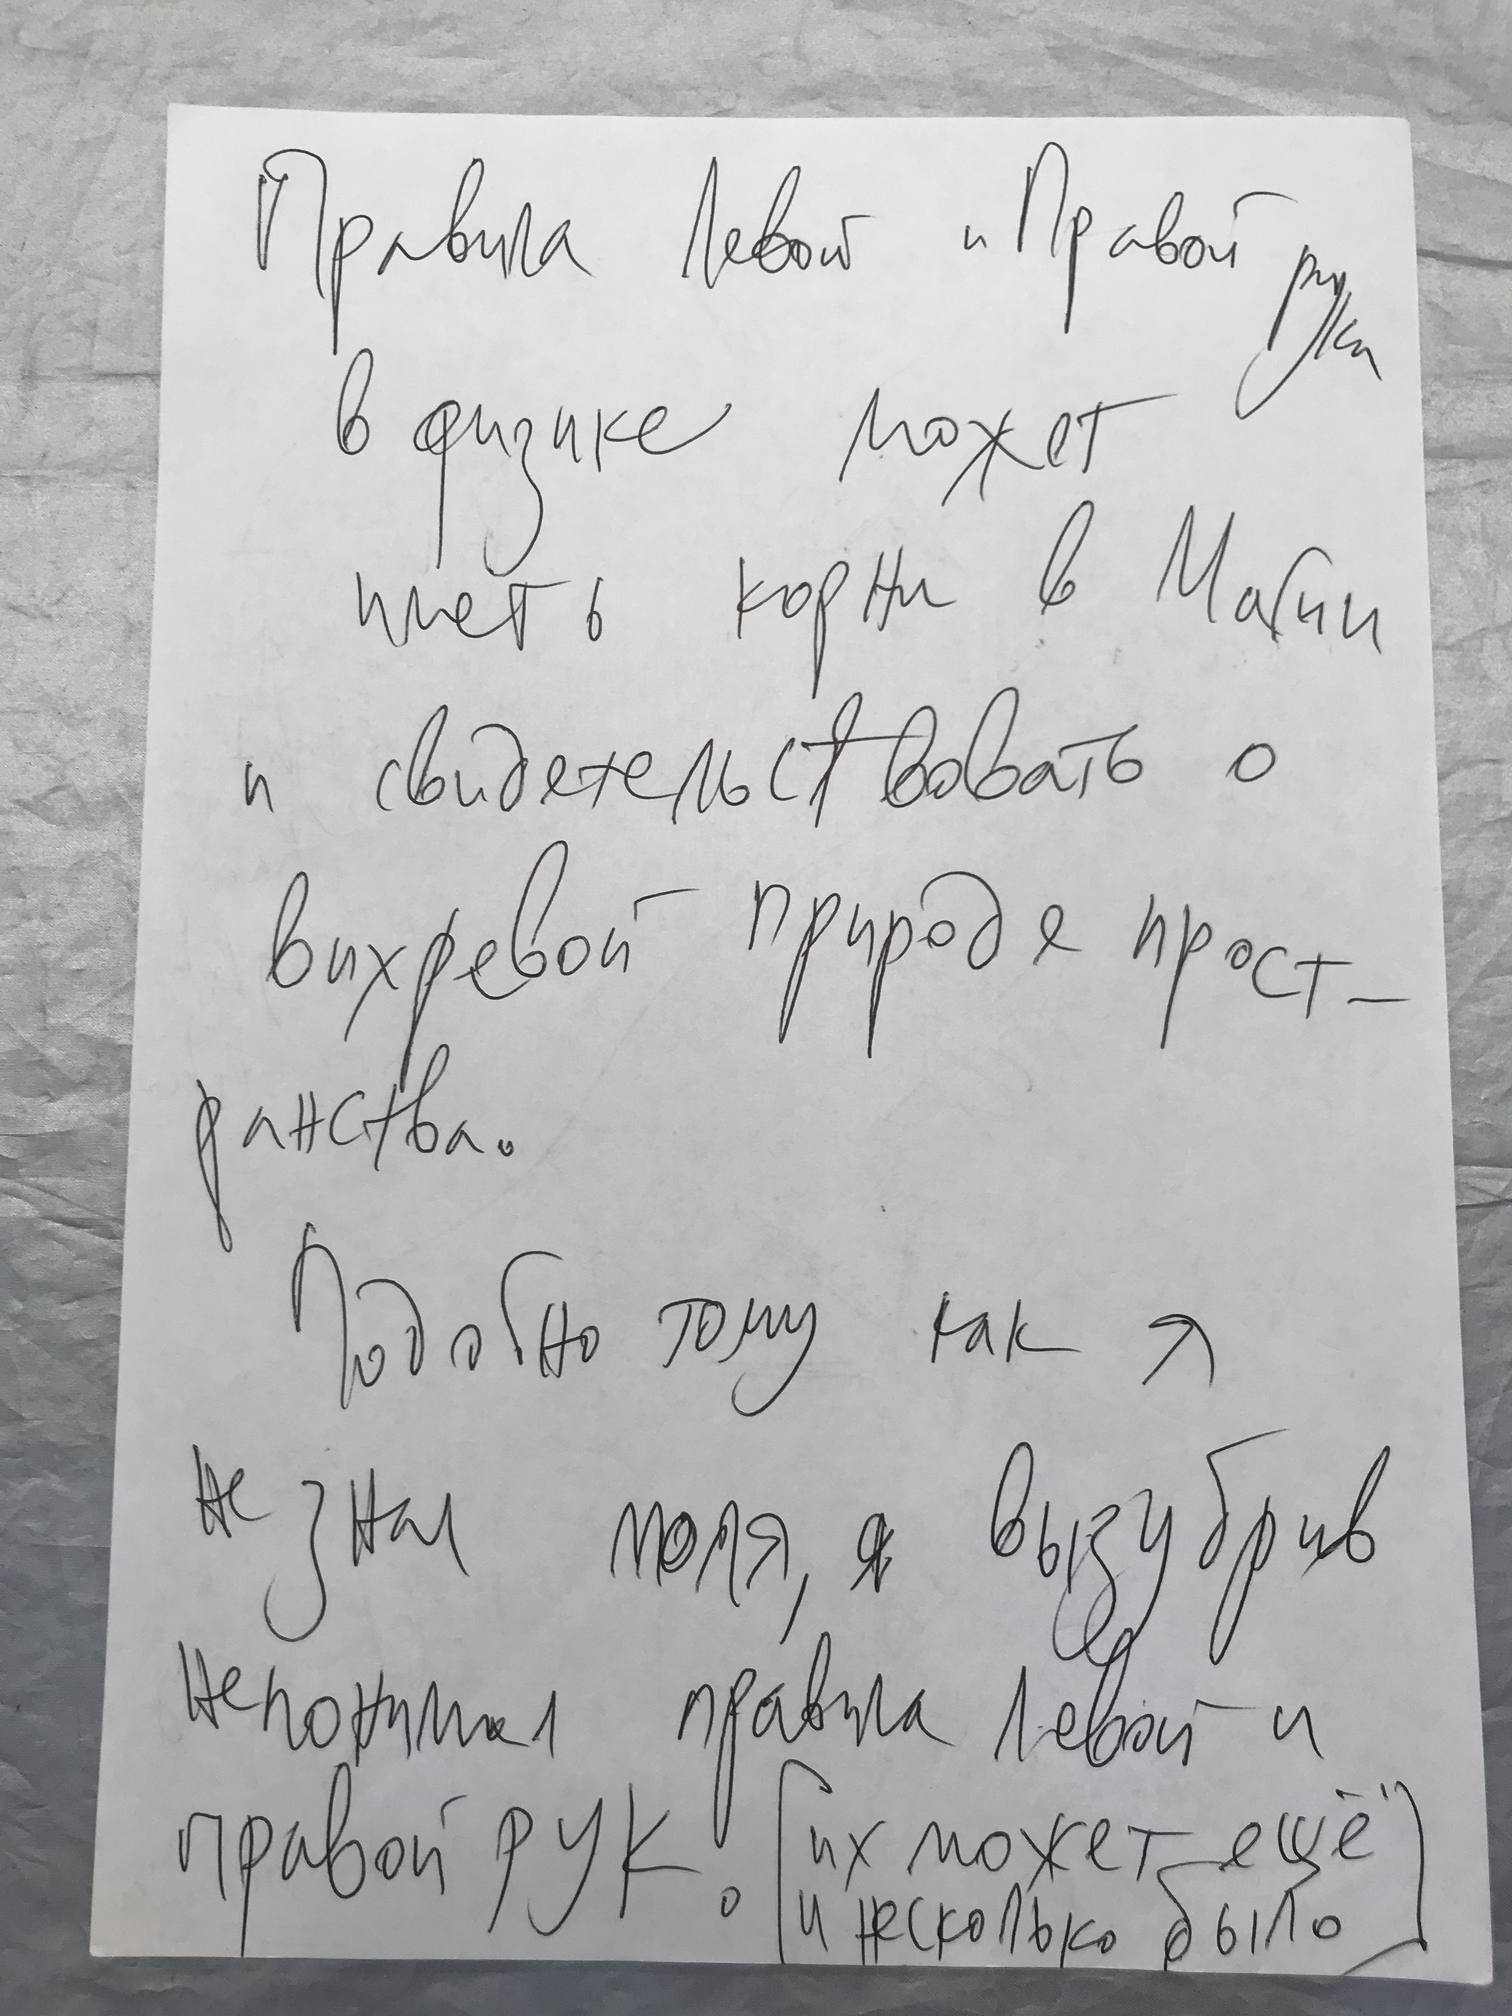 Правила левой и Правой руки
в физике может
иметь корни в Магии
и свидетельствовать о
вихревой природе прост-
ранства.
Подобно тому как я
не знал моля, я вызубрив
непонимал правила левой и
правой рук. [их может ещё
и несколько было]